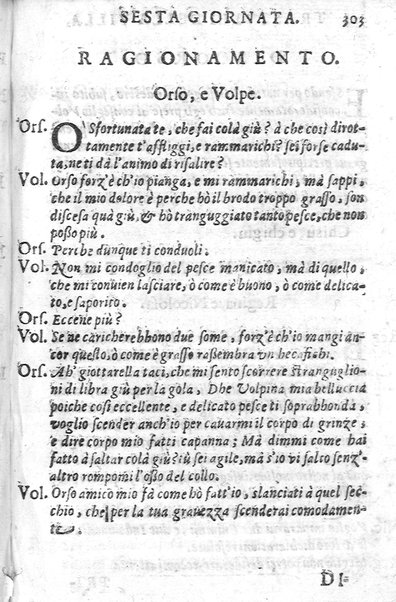 SESTA GIORNATA. 303
RAGIONAMENTO.
Orso, e Volpe.
Ors. O Sfortunata te, che fai colà giù? à che così dirot-
tamente t'affliggi, e rammarichi? sei forse cadu-
ta, ne ti dà l'animo di risalire?
Vol. Orso forz'è ch'io pianga, e mi rammarichi, mà sappi,
che il mio dolore è perche hò il brodo troppo grasso, son
discesa quà giù, & hò trangugiato tanto pesce, che non
posso più.
Ors. Perche dunque ti conduoli.
Vol. Non mi condoglio del pesce manicato, mà di quello,
che mi conuien lasciare, ò come è buono, ò come delica-
to, e saporito.
Ors. Eccene più?
Vol. Se ne caricherebbono due some, forz'è ch'io mangi an-
cor questo, ò come è grasso rassembra vn becafighi.
Ors. Ah' giottarella taci, che mi sento scorrere stranguglio-
ni di libra giù per la gola, Dhe Volpina mia belluccia
poiche così eccellente, e delicato pesce ti soprabbonda,
voglio scender anch'io per cauarmi il corpo di grinze,
e dire corpo mio fatti capanna; Mà dimmi come hai
fatto à saltar colà giù? tù sei agile, mà s'io vi salto senz'
altro rompomi l'osso del collo.
Vol. Orso amico mio fà come hò fatt'io, slanciati à quel sec-
chio, che per la tua grauezza scenderai comodamen-
te.
DI-